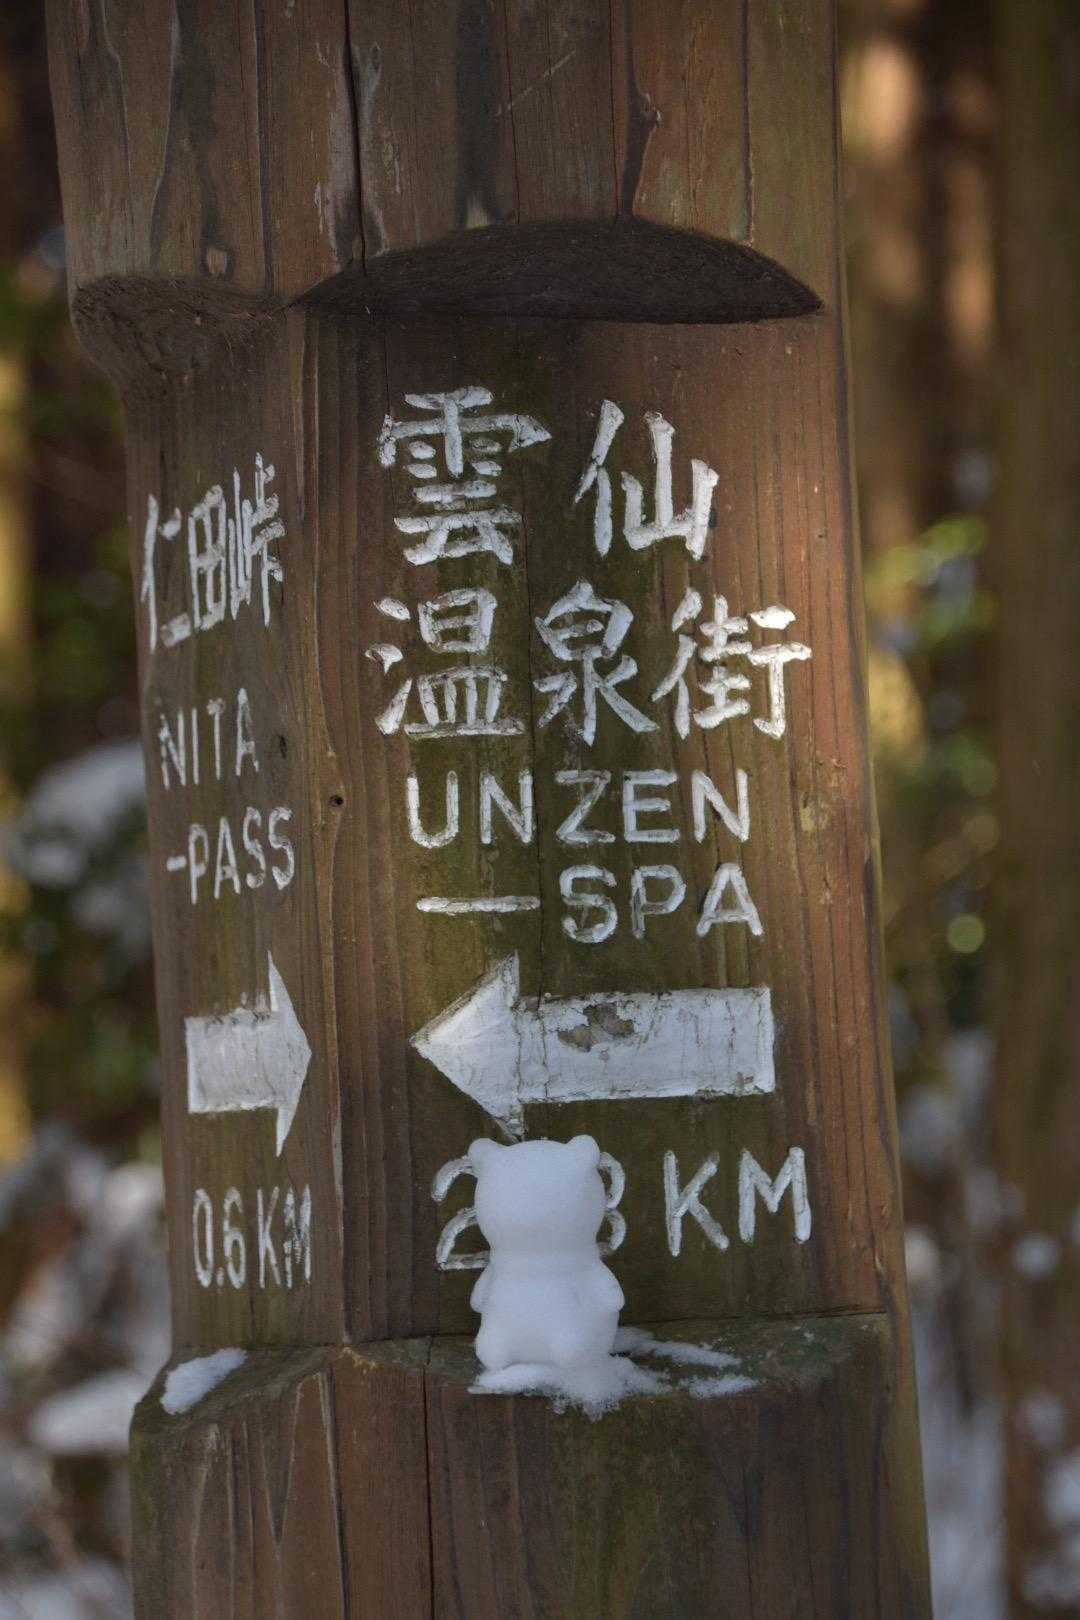 仁田峠
NITA
-PASS
0.6KM
雲仙
温泉街
UNZEN
-SPA
KM